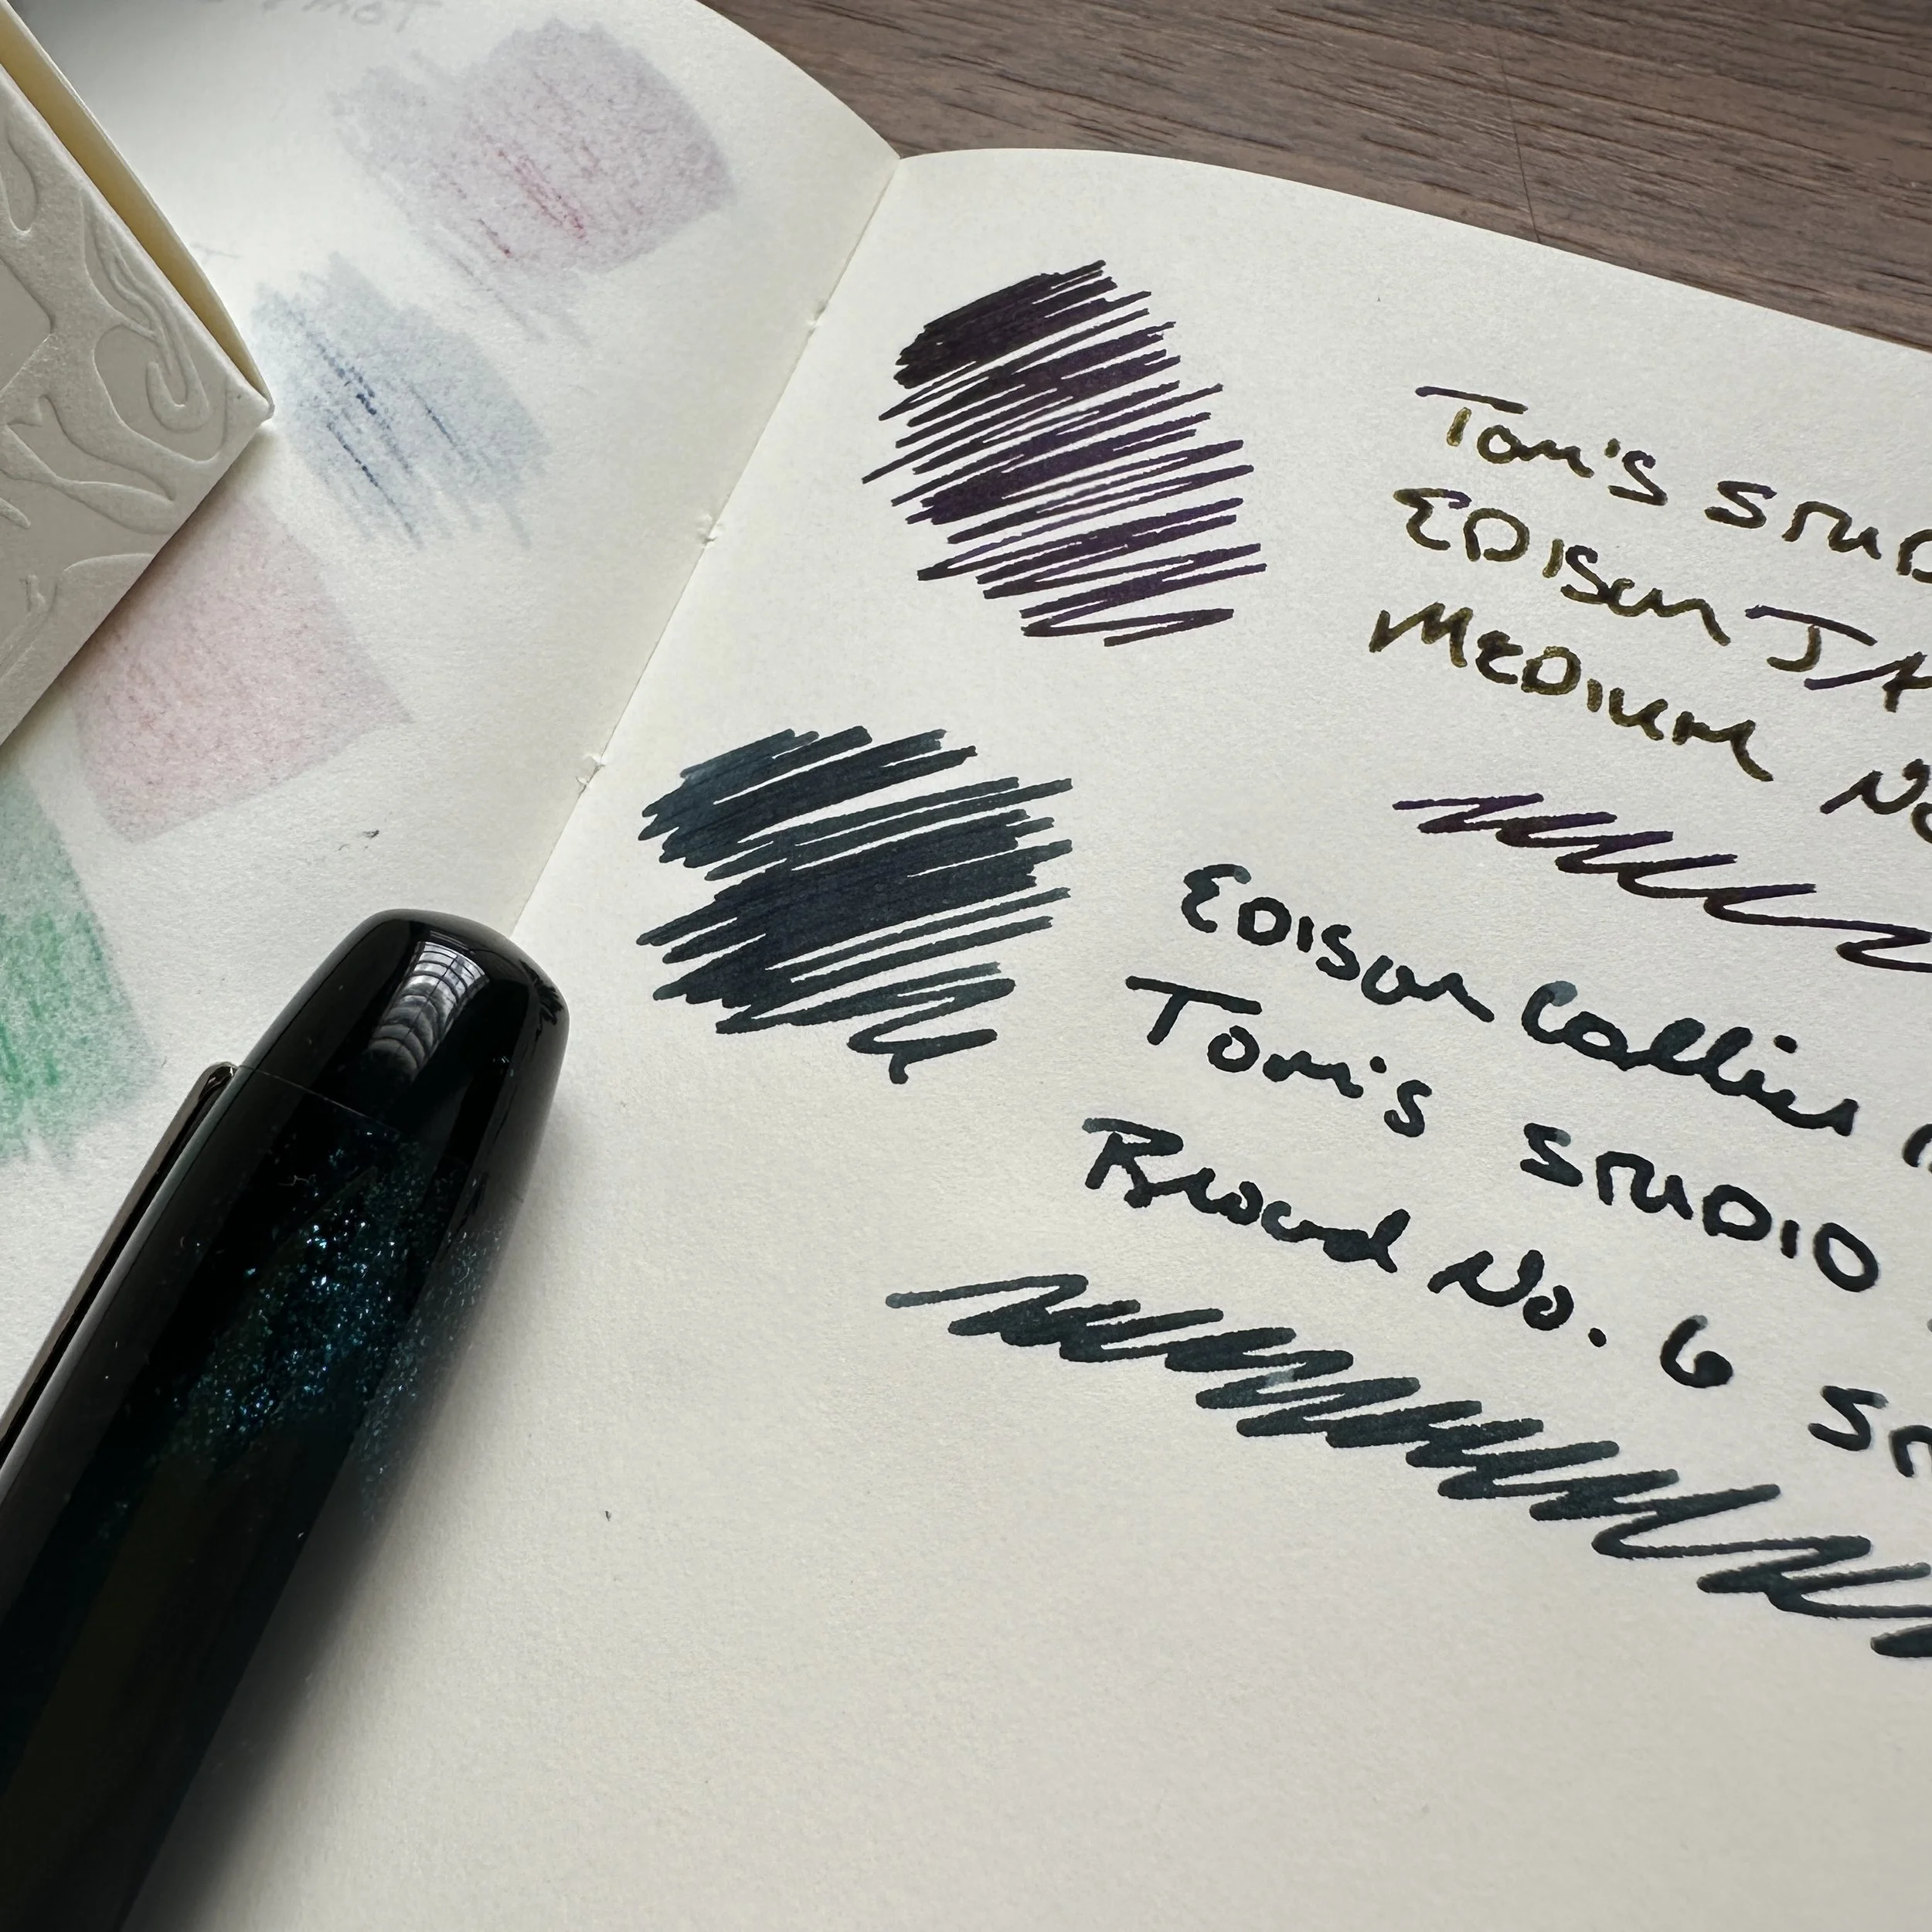 Tom's STUD
EDISON JA
MEDIUM No
EDISON Collier
Tom's STUDIO
Broad No. 6 ST